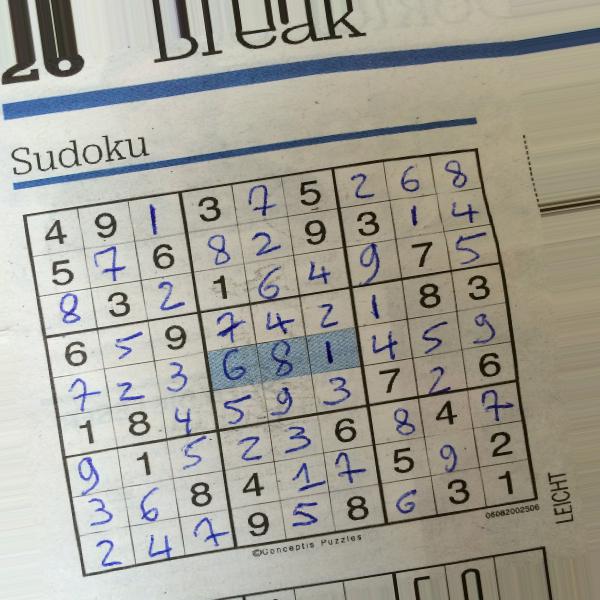 28 Break
Sudoku
4 9 1 3 7 5 2 6 8
5 7 6 8 2 9 3 1 4
8 3 2 1 6 4 9 7 5
6 5 9 7 4 2 1 8 3
7 2 3 6 8 1 4 5 9
1 8 4 5 9 3 7 2 6
9 1 5 2 3 6 8 4 7
3 6 8 4 1 7 5 9 2
2 4 7 9 5 8 6 3 1
©Conceptis Puzzles
06082002506
LEICHT